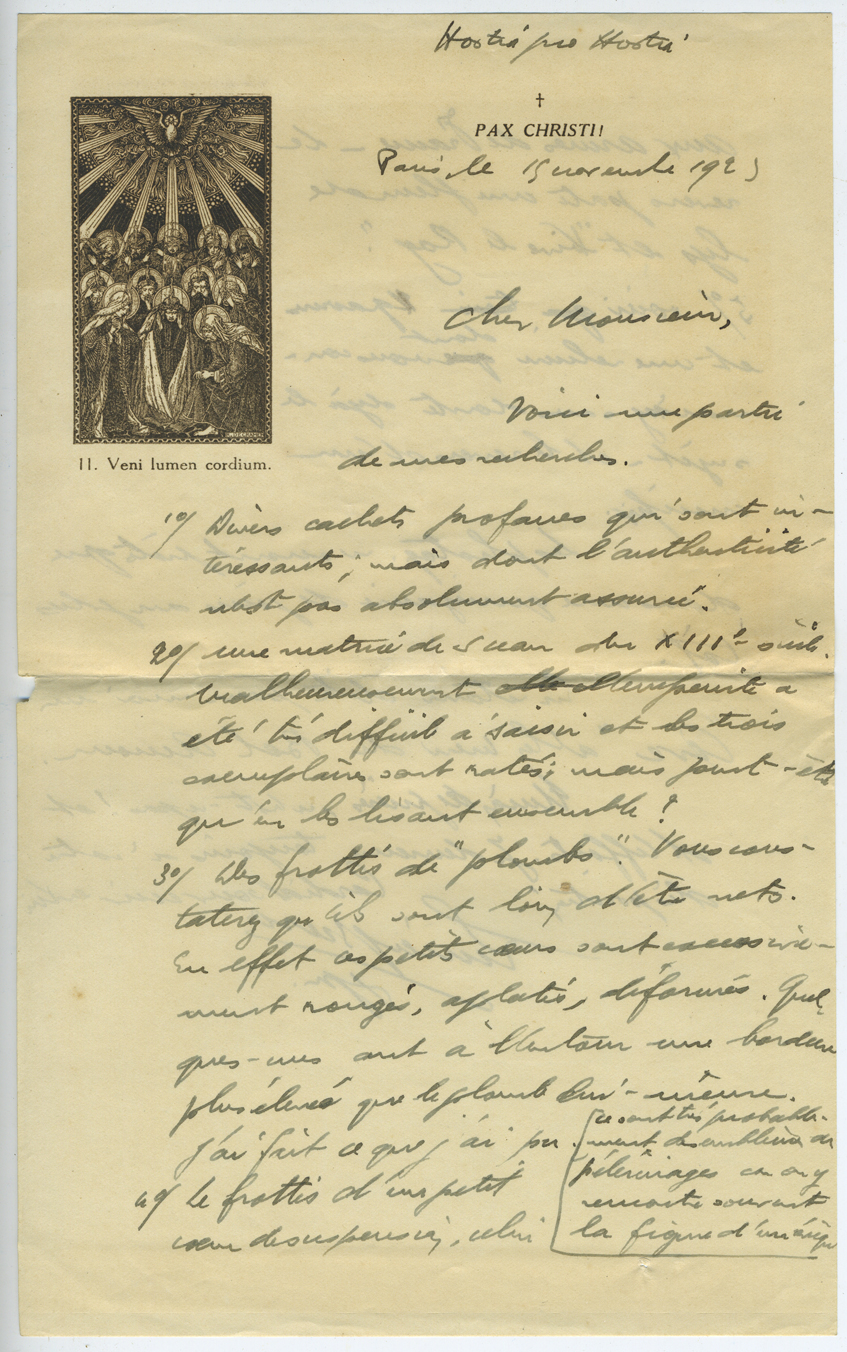 Hostia pro Hostia
†
PAX CHRISTI!
Paris, le 15 novembre 192
Cher Monsieur,
Voici une partie
de mes recherches.
II. Veni lumen cordium.
1º/ Divers cachets profanes qui sont in-
téressants; mais dont l'authenticité
n'est pas absolument assurée.
2º/ une matrice de sceau du XIIIe siècle.
Malheureusement l'empreinte a
été très difficile à saisir et les trois
exemplaires sont ratés; mais peut-être
qu'en les lisant ensemble?
3º/ Des frottis de "plombs". Vous cons-
taterez qu'ils sont loin d'être nets.
En effet ces petits cœurs sont excessive-
ment rongés, aplatis, déformés. Quel-
ques-uns ont à l'entour une bordure
plus élevée que le plomb lui-même.
J'ai fait ce que j'ai pu.
[ce sont très probable-
ment des emblèmes de
pèlerinages car on y
rencontre souvent
la figure d'un évêque
4º/ Le frottis d'un petit
cœur de suspension, celui